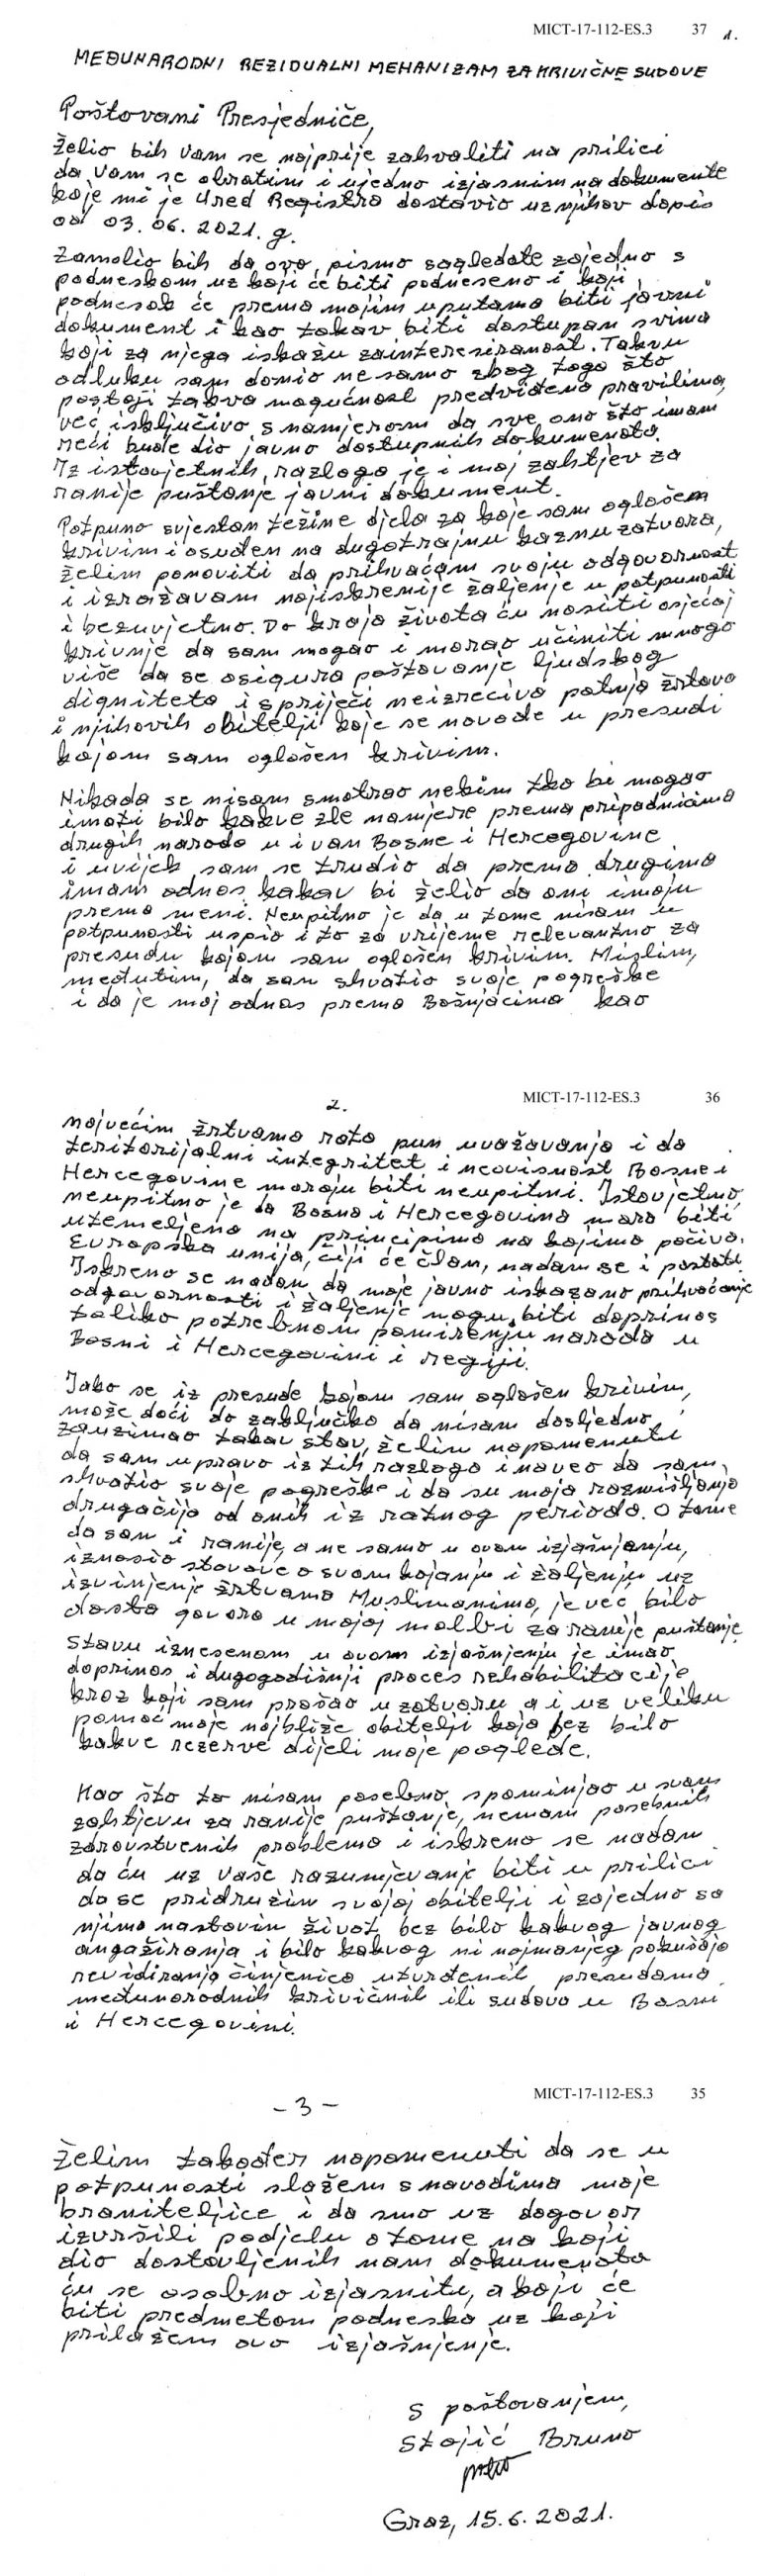 MICT-17-112-ES.3 37 d.
MEĐUNARODNI REZIDUALNI MEHANIZAM ZA KRIVIČNE SUDOVE
Poštovani Presjedniče,
Želio bih Vam se najprije zahvaliti na prilici
da Vam se obratim i ujedno izjasnim na dokumente
koje mi je Ured Registra dostavio uz njihov dopis
od 03.06.2021.g.
Zamolio bih da ovo pismo sagledate zajedno s
podneskom uz koji će biti podneseno i koji
podnesak će prema mojim uputama biti javni
dokument i kao takav biti dostupan svima
koji za njega iskažu zainteresiranost. Takvu
odluku sam donio ne samo zbog toga što
postoji takva mogućnost predviđena pravilima,
već isključivo s namjerom da sve ono što imam
reći bude dio javno dostupnih dokumenata.
Iz istovjetnih razloga je i moj zahtjev za
ranije puštanje javni dokument.
Potpuno svjestan težine djela za koje sam oglašen
krivim i osuđen na dugotrajnu kaznu zatvora,
želim ponoviti da prihvaćam svoju odgovornost
i izražavam najiskrenije žaljenje u potpunosti
i bezuvjetno. Do kraja života ću nositi osjećaj
krivnje da sam mogao i morao učiniti mnogo
više da se osigura poštovanje ljudskog
digniteta i spriječi neizreciva patnja žrtava
i njihovih obitelji koje se navode u presudi
kojom sam oglašen krivim.
Nikada se nisam smatrao nekim tko bi mogao
imati bilo kakve zle namjere prema pripadnicima
drugih naroda u i van Bosne i Hercegovine
i uvijek sam se trudio da prema drugima
imam odnos kakav bi želio da oni imaju
prema meni. Neupitno je da u tome nisam u
potpunosti uspio i to za vrijeme relevantno za
presudu kojom sam oglašen krivim. Mislim,
međutim, da sam shvatio svoje pogreške
i da je moj odnos prema Bošnjacima kao
2. MICT-17-112-ES.3 36
najvećim žrtvama rata pun uvažavanja i da
teritorijalni integritet i neovisnost Bosne i
Hercegovine moraju biti neupitni. Istovjetno,
neupitno je da Bosna i Hercegovina mora biti
utemeljena na principima na kojima počiva
Evropska unija, čiji će član, nadam se i postati.
Iskreno se nadam da moje javno iskazano prihvaćanje
odgovornosti i žaljenje mogu biti doprinos
toliko potrebnom pomirenju naroda u
Bosni i Hercegovini i regiji.
Iako se iz presude kojom sam oglašen krivim,
može doći do zaključka da nisam dosljedno
zauzimao takav stav, želim napomenuti
da sam upravo iz tih razloga i naveo da sam
shvatio svoje pogreške i da su moja razmišljanja
drugačija od onih iz ratnog perioda. O tome
da sam i ranije, a ne samo u ovom izjašnjanju,
iznosio stavove o svom kajanju i žaljenju uz
izvinjenje žrtvama Muslimanima, je već bilo
dosta govora u mojoj molbi za ranije puštanje.
Stavu iznesenom u ovom izjašnjenju je imao
doprinos i dugogodišnji proces rehabilitacije
kroz koji sam prošao u zatvoru a i uz veliku
pomoć moje najbliže obitelji koja bez bilo
kakve rezerve dijeli moje poglede.
Kao što to nisam posebno spominjao u svom
zahtjevu za ranije puštanje, nemam posebnih
zdravstvenih problema i iskreno se nadam
da ću uz Vaše razumjevanje biti u prilici
da se pridružim svojoj obitelji i zajedno sa
njima nastavim život bez bilo kakvog javnog
angažiranja i bilo kakvog ni najmanjeg pokušaja
revidiranja činjenica utvrđenih presudama
međunarodnih krivičnih ili sudova u Bosni
i Hercegovini.
- 3 - MICT-17-112-ES.3 35
Želim također napomenuti da se u
potpunosti slažem s navodima moje
braniteljice i da smo uz dogovor
izvršili podjelu o tome na koji
dio dostavljenih nam dokumenata
ću se osobno izjasniti, a koji će
biti predmetom podneska uz koji
prilažem ovo izjašnjenje.
S poštovanjem,
Stojić Bruno
Graz, 15.6.2021.